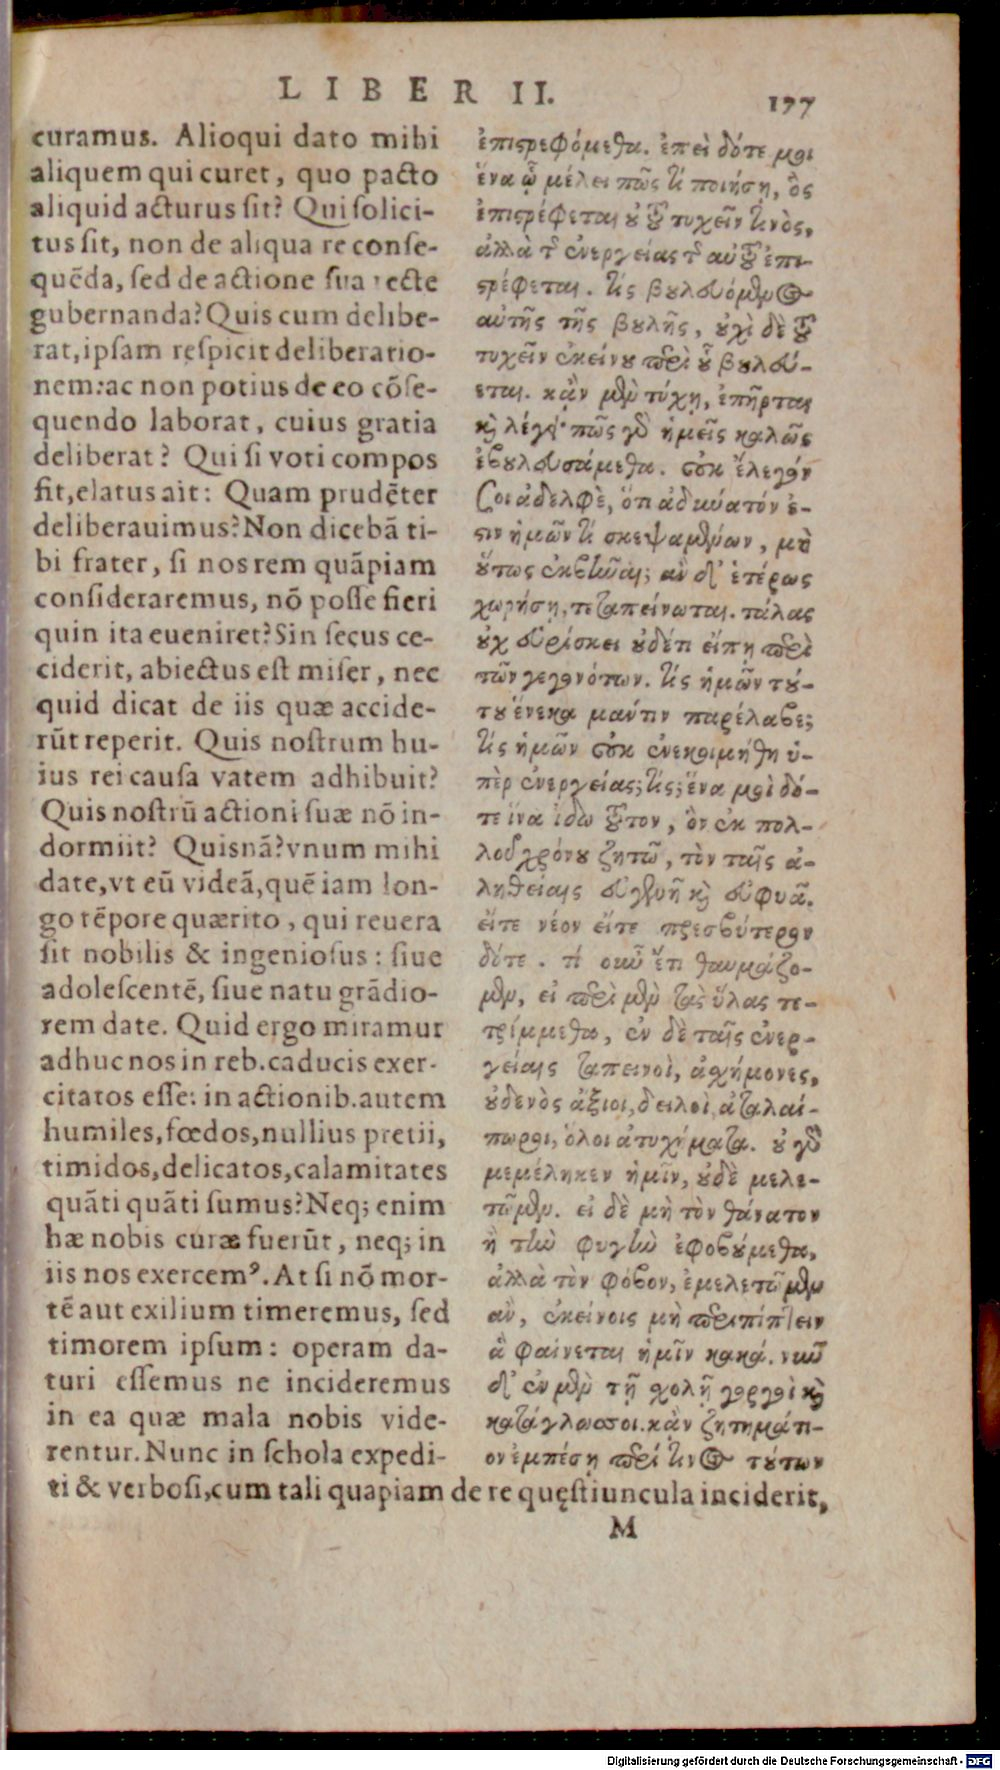 LIBER II.
177
curamus. Alioqui dato mihi
aliquem qui curet, quo pacto
aliquid acturus sit? Qui solici-
tus sit, non de aliqua re conse-
quēda, sed de actione sua recte
gubernanda? Quis cum delibe-
rat, ipsam respicit deliberatio-
nem: ac non potius de eo cōse-
quendo laborat, cuius gratia
deliberat? Qui si voti compos
fit, elatus ait: Quam prudēter
deliberauimus? Non dicebā ti-
bi frater, si nos rem quāpiam
consideraremus, nō posse fieri
quin ita eueniret? Sin secus ce-
ciderit, abiectus est miser, nec
quid dicat de iis quæ accide-
rūt reperit. Quis nostrum hu-
ius rei causa vatem adhibuit?
Quis nostrū actioni suæ nō in-
dormiit? Quisnā? vnum mihi
date, vt eū videā, quē iam lon-
go tēpore quærito, qui reuera
sit nobilis & ingeniosus: siue
adolescentē, siue natu grādio-
rem date. Quid ergo miramur
adhuc nos in reb. caducis exer-
citatos esse: in actionib. autem
humiles, fœdos, nullius pretii,
timidos, delicatos, calamitates
quāti quāti sumus? Neq; enim
hæ nobis curæ fuerūt, neq; in
iis nos exercemꝰ. At si nō mor-
tē aut exilium timeremus, sed
timorem ipsum: operam da-
turi essemus ne incideremus
in ea quæ mala nobis vide-
rentur. Nunc in schola expedi-
ti & verbosi, cum tali quapiam de re quęstiuncula inciderit,
ἐπιϛρεφόμεθα. ἐπεὶ δότε μοι
ἕνα ᾧ μέλει πῶς τί ποιήσῃ, ὃς
ἐπιϛρέφεται οὐ τοῦ τυχεῖν τινὸς,
ἀλλὰ τ͂ ἐνεργείας τ͂ αὑτοῦ ἐπι-
ϛρέφεται. τίς βουλευόμενος
αὐτῆς τῆς βουλῆς, οὐχὶ δὲ τοῦ
τυχεῖν ἐκείνου περὶ οὗ βουλεύ-
εται. κἂν μὲν τύχῃ, ἐπῆρται
καὶ λέγει· πῶς γὰρ ἡμεῖς καλῶς
ἐβουλευσάμεθα. οὐκ ἔλεγόν
σοι ἀδελφὲ, ὅτι ἀδύνατόν ἐ-
ϛιν ἡμῶν τί σκεψαμένων, μὴ
οὕτως ἐκβῆναι; ἂν δ' ἑτέρως
χωρήσῃ, τεταπείνωται. τάλας
οὐχ εὑρίσκει οὐδέτι εἴπῃ περὶ
τῶν γεγονότων. τίς ἡμῶν τού-
του ἕνεκα μαύτιν παρέλαβε;
τίς ἡμῶν οὐκ ἐνεκοιμήθη ὑ-
πὲρ ἐνεργείας; τίς; ἕνα μοὶ δό-
τε ἵνα ἰδω τοῦτον, ὃν ἐκ πολ-
λοῦ χρόνου ζητῶ, τὸν ταῖς ἀ-
ληθείαις εὐγενῆ καὶ εὐφυᾶ.
εἴτε νέον εἴτε πρεσβύτερον
δότε. τί οὖν ἔτι θαυμάζο-
μεν, εἰ περὶ μὲν τὰς ὕλας τε-
τρίμμεθα, ἐν δὲ ταῖς ἐνερ-
γείαις ταπεινοὶ, ἀχήμονες,
οὐδενὸς ἄξιοι, δειλοὶ, ἀταλαί-
πωροι, ὅλοι ἀτυχήματα. οὐ γὰρ
μεμέληκεν ἡμῖν, οὐδὲ μελε-
τῶμεν. εἰ δὲ μὴ τὸν θάνατον
ἢ τὴν φυγὴν ἐφοβούμεθα,
ἀλλὰ τὸν φόβον, ἐμελετῶμεν
ἂν, ἐκείνοις μὴ περιπίπτειν
ἃ φαίνεται ἡμῖν κακά. νῦν
δ' ἐν μὲν τῇ σχολῇ γοργοὶ καὶ
κατάγλωσσοι. κἂν ζητημάτι-
ον ἐμπέσῃ περί τινος τούτων
M
Digitalisierung gefördert durch die Deutsche Forschungsgemeinschaft - DFG